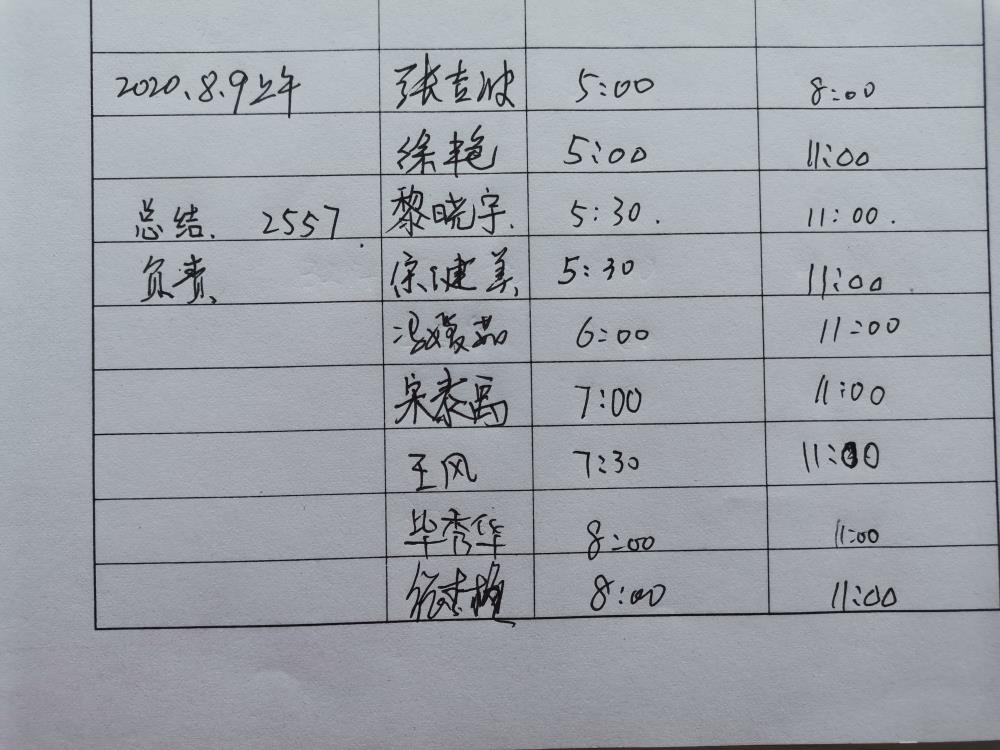 2020.8.9上午 张吉波 5:00 8:00
徐艳 5:00 11:00
总结. 2557. 黎晓宇. 5:30. 11:00.
负责 宗健美 5:30 11:00
冯媛茹 6:00 11:00
宋泰禹 7:00 11:00
王风 7:30 11:00
毕秀华 8:00 11:00
8:00 11:00